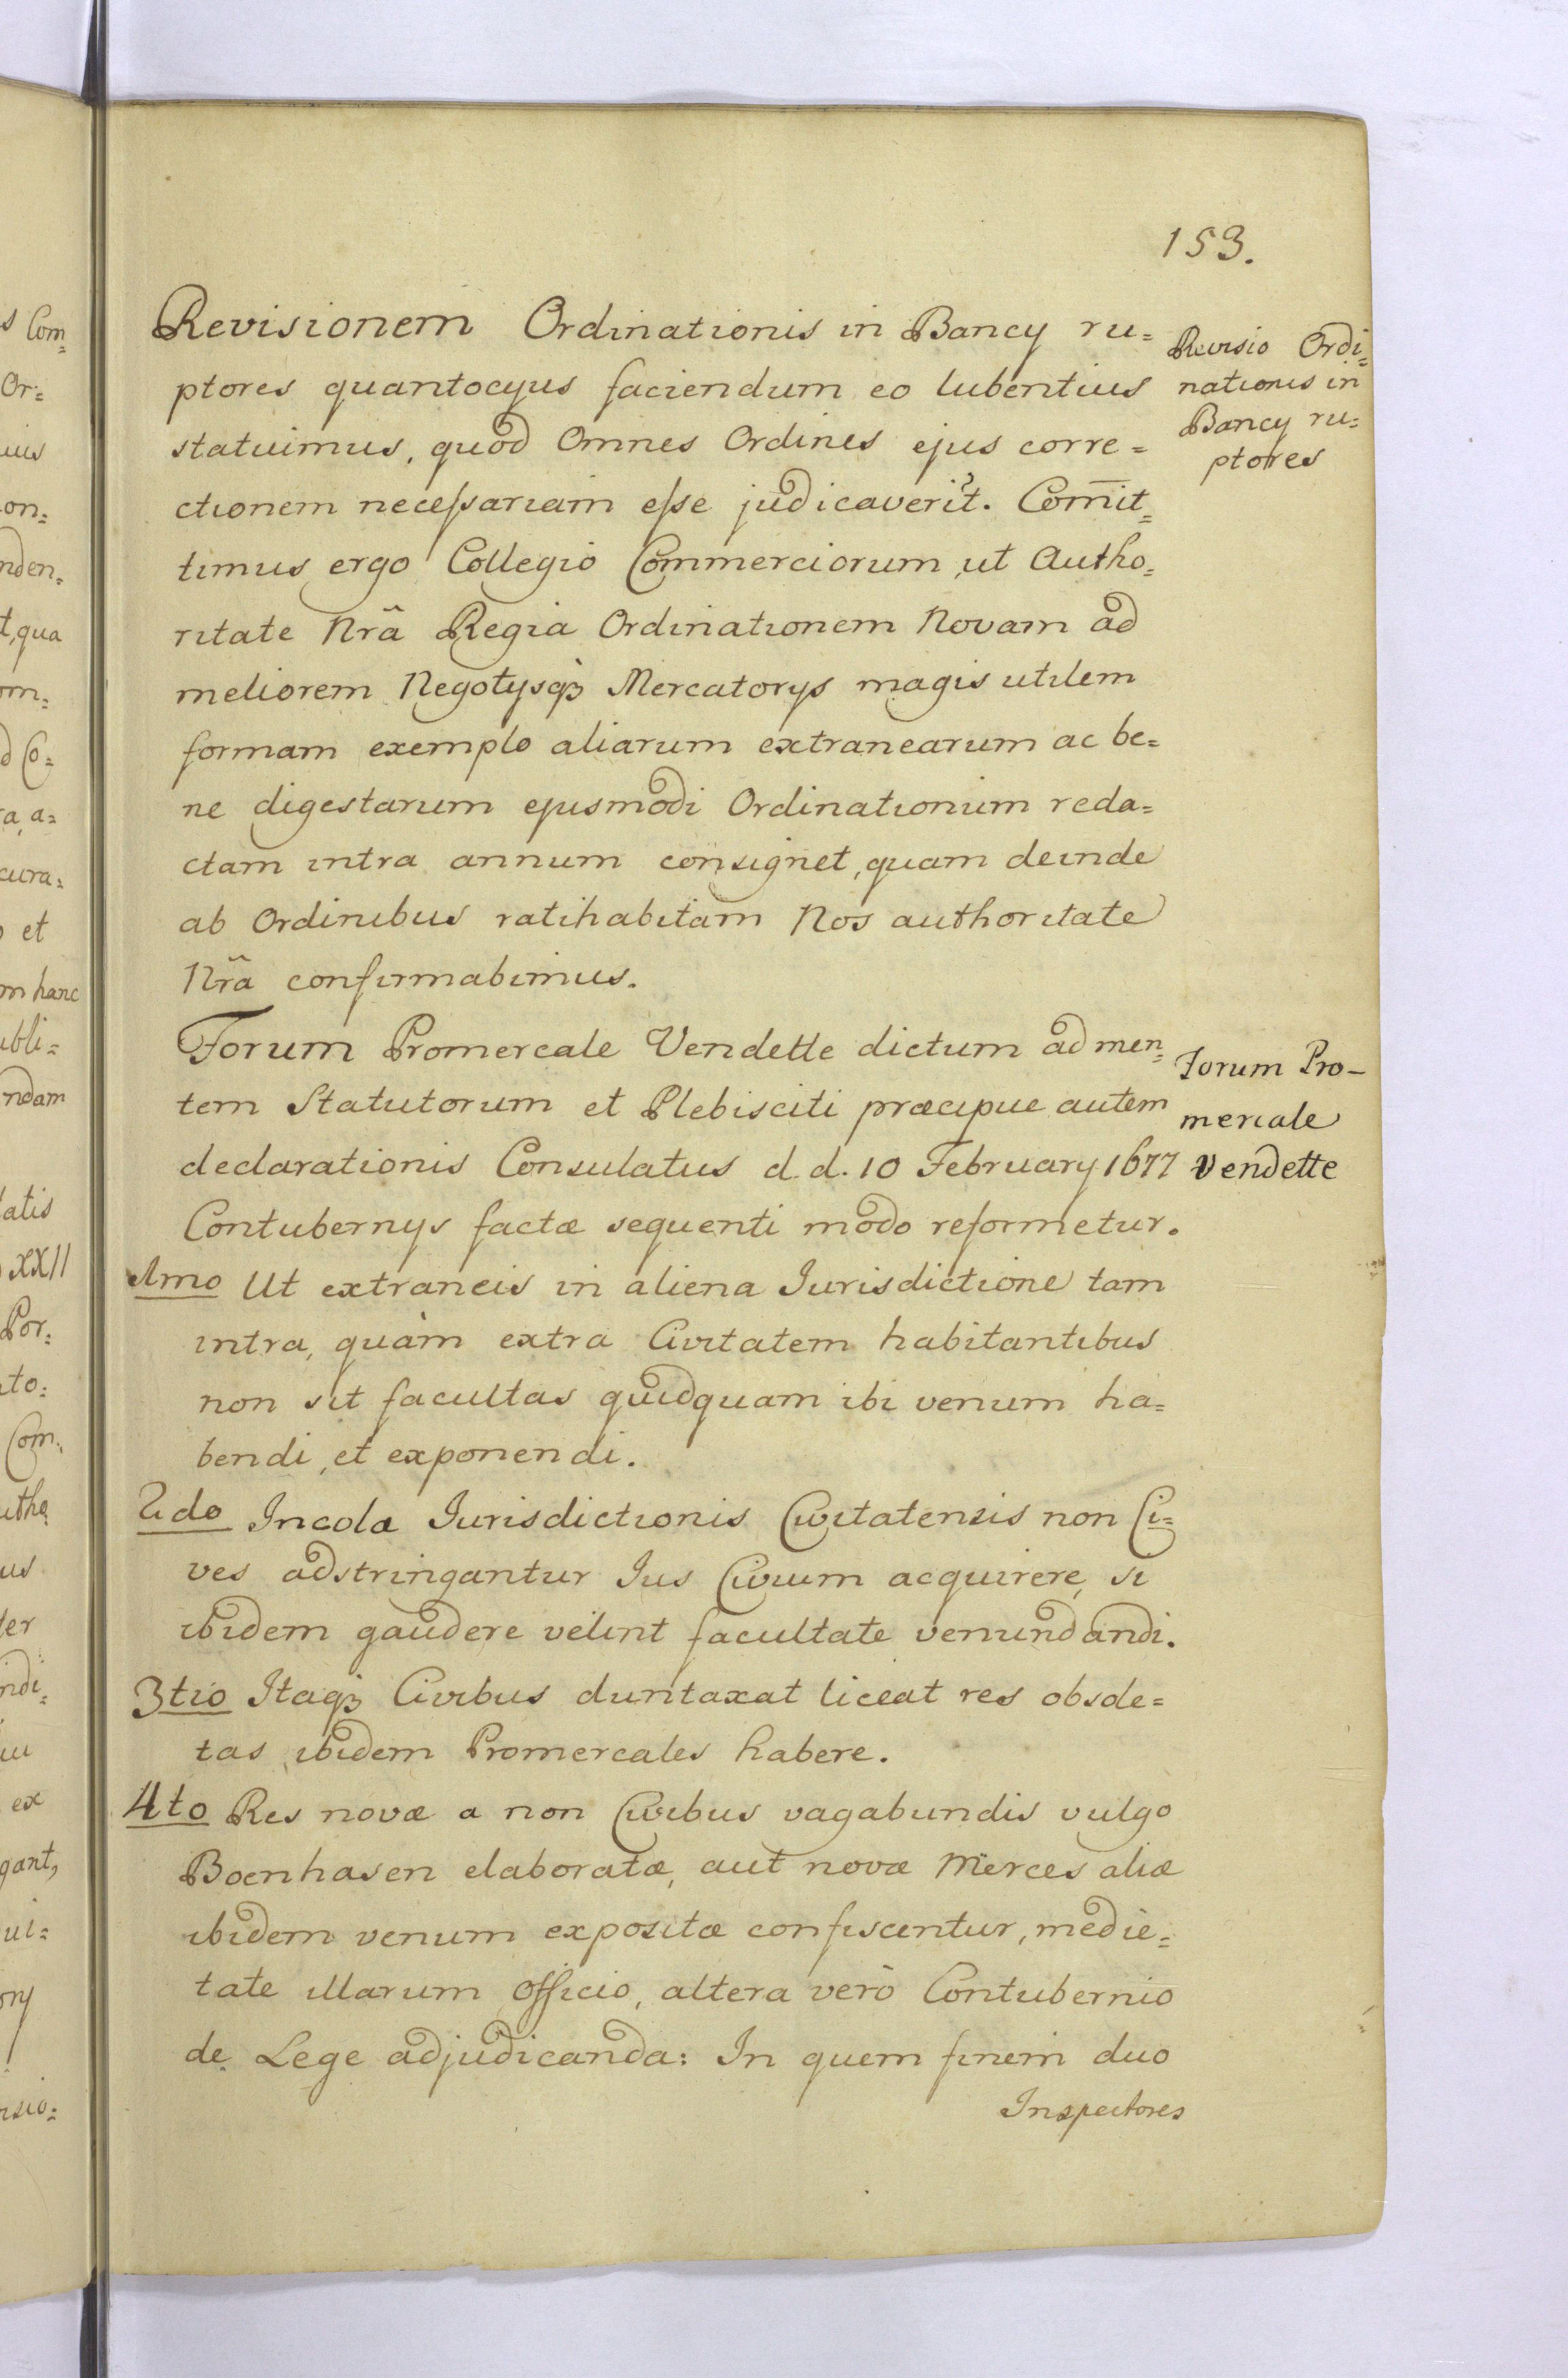 153.
Revisionem Ordinationis in Bancy ru=
ptores quantocyus faciendum eo lubentius
statuimus, quod Omnes Ordines ejus corre=
ctionem neceſsariam eſse judicaverit. Com̄it=
timus ergo Collegio Commerciorum, ut Autho=
ritate Nrã Regia Ordinationem Novam ad
meliorem Negotysqꝫ Mercatorys magis utilem
formam exemplo aliarum extranearum ac be=
ne digestarum ejusmodi Ordinationum reda=
ctam intra annum consignet, quam deinde
ab Ordinibus ratihabitam Nos authoritate
Nrã confirmabimus.
Revisio Ordi=
nationis in
Bancy ru=
ptores
Forum Promercale Vendette dictum ad men=
tem Statutorum et Plebisciti præcipue autem
declarationis Consulatus d. d. 10 February 1677
Contubernys factæ sequenti modo reformetur.
Forum Pro-
mercale
Vendette
1mo Ut extraneis in aliena Jurisdictione tam
intra, quàm extra Civitatem habitantibus
non sit facultas quidquam ibi venum ha=
bendi, et exponendi.
2do Incolæ Jurisdictionis Civitatensis non Ci=
ves adstringantur Jus Civium acquirere, si
ibidem gaudere velint facultate venundandi.
3tio Itaqꝫ Civibus duntaxat liceat res obsole=
tas ibidem Promercales habere.
4to Res novæ a non Civibus vagabundis vulgo
Boenhasen elaboratæ, aut novæ Merces aliæ
ibidem venum expositæ confiscentur, medie=
tate illarum Officio, altera verò Contubernio
de Lege adjudicanda: In quem finem duo
Inspectores